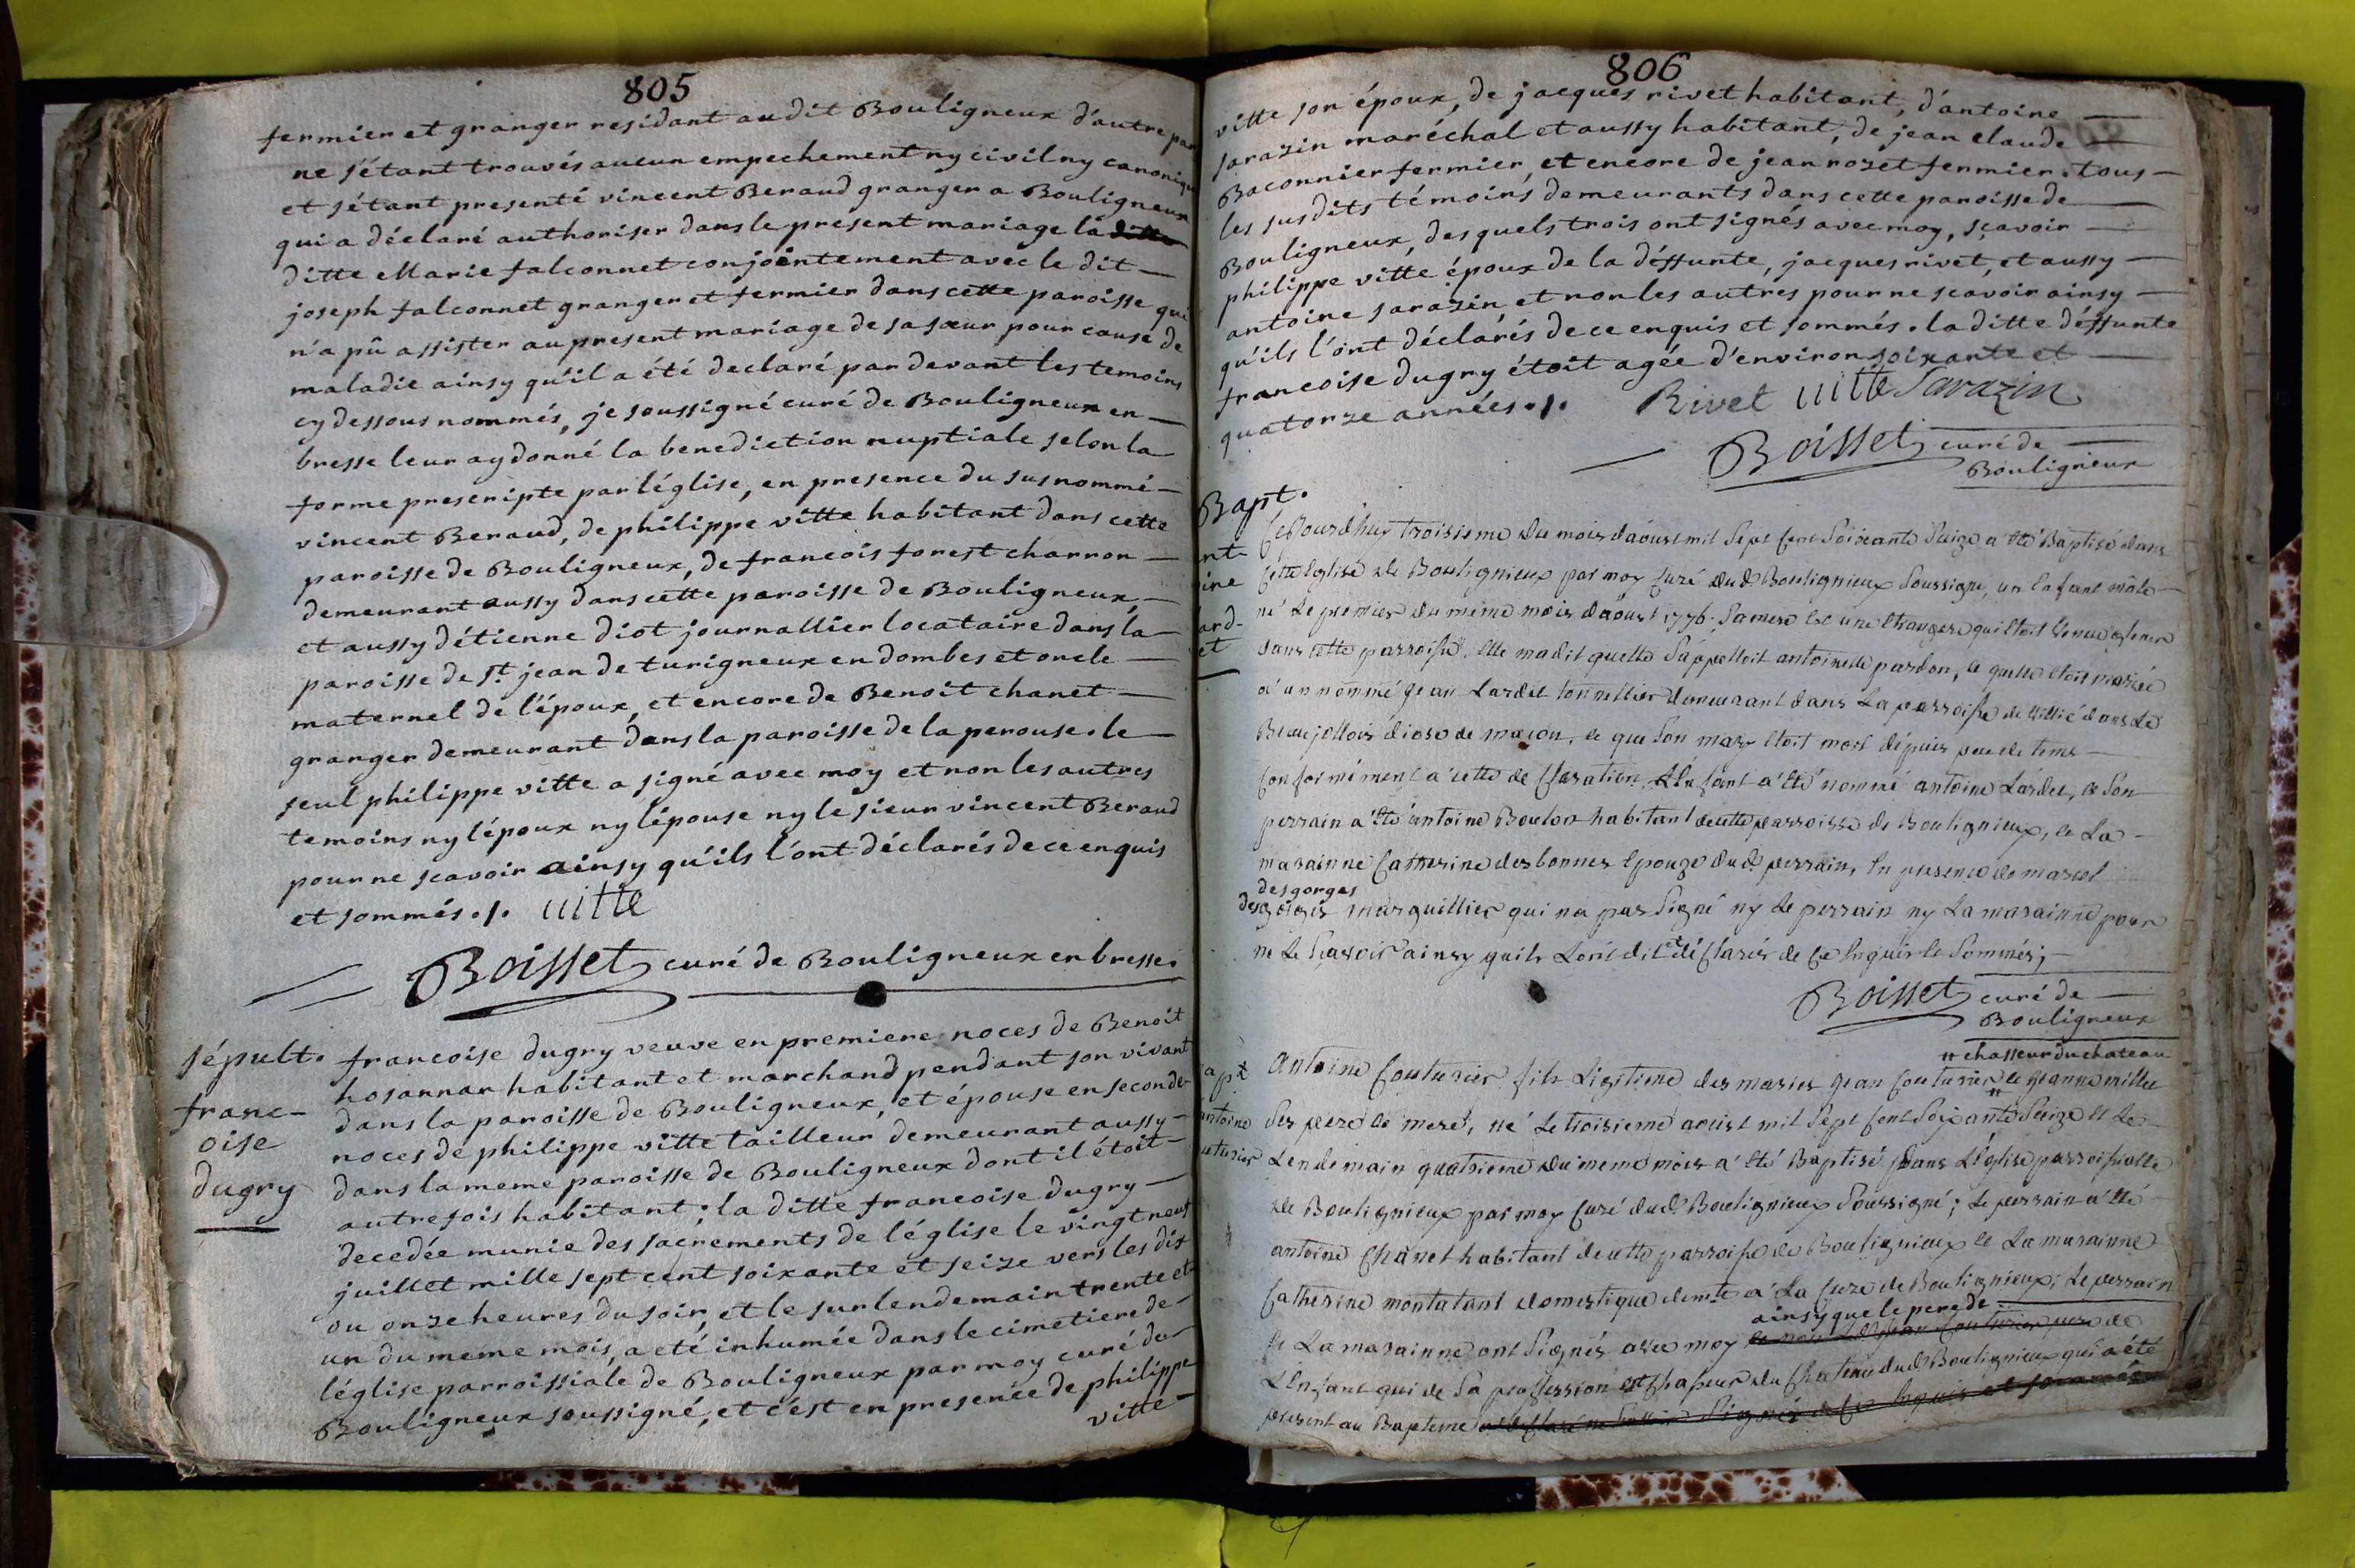 805
fermier et granger residant au dit Bouligneux d'autre par
ne s'étant trouvés aucun empechement ny civil ny canonique
et s'étant presenté vincent Beraud granger a Bouligneux
qui a déclaré authoriser dans le present mariage la
ditte Marie falconnet conjointement avec le dit
joseph falconnet granger et fermier dans cette paroisse qui
n'a pû assister au present mariage de sa sœur pour cause de
maladie ainsy qu'il a été declaré par devant les temoins
cy dessous nommés, je soussigné curé de Bouligneux en
bresse leur ay donné la benediction nuptiale selon la
forme prescripte par l'église, en presence du susnommé
vincent Beraud, de philippe vitte habitant dans cette
paroisse de Bouligneux, de francois forest charron
demeurant aussy dans cette paroisse de Bouligneux,
et aussy d'étienne diot journallier locataire dans la
paroisse de st. jean de turigneux en dombes et oncle
maternel de l'époux, et encore de Benoit chanet
granger demeurant dans la paroisse de la perouse. le
seul philippe vitte a signé avec moy et non les autres
temoins ny l'époux ny l'épouse ny le sieur vincent Beraud
pour ne scavoir ainsy qu'ils l'ont déclarés de ce enquis
et sommés ./. vitte
Boisset curé de Bouligneux en bresse.
sépult.
franc-
oise
dugry
francoise dugry veuve en premiere noces de Benoit
hosannar habitant et marchand pendant son vivant
dans la paroisse de Bouligneux, et épouse en seconde
noces de philippe vitte tailleur demeurant aussy
dans la meme paroisse de Bouligneux dont il étoit
autrefois habitant; la ditte francoise dugry
decedée munie des sacrements de l'église le vingt neuf
juillet mille sept cent soixante et seize vers les dix
ou onze heures du soir, et le surlendemain trente et
un du meme mois, a eté inhumée dans le cimetiere de
l'église parroissiale de Bouligneux par moy curé du
Bouligneux soussigné, et c'est en presence de philippe
vitte
806
vitte son époux, de jacques rivet habitant, d'antoine
sarazin maréchal et aussy habitant, de jean claude
Baconnier fermier, et encore de jean rozet fermier. tous
les susdits témoins demeurants dans cette paroisse de
Bouligneux, desquels trois ont signés avec moy, sçavoir
philippe vitte époux de la déffunte, jacques rivet, et aussy
antoine sarazin et non les autres pour ne scavoir ainsy
qu'ils l'ont déclarés de ce enquis et sommés. la ditte déffunte
francoise dugry étoit agée d'environ soixante et
quatorze années ./. Rivet vitte Sarazin
Boisset curé de
Bouligneux
Bapt.
ant-
oine
lard-
et
Ce Jourdhuy troisieme du mois daoust mil Sept Cent Soixante Seize a été Baptisé dans
Cette Eglise de Boulignieux par moy Curé dud. Boulignieux Soussigné, un Enfant mâle
né le premier du même mois daoust 1776; Sa mere Est une Etrangere qui Etoit venue
dans cette parroisse. Elle ma dit quelle S'appelloit antoinette pardon, et quelle étoit mariée
a un nommé jean Lardet tonnellier demeurant dans La parroisse de villié dans le
Beaujollois diose de macon, et que Son mary Etoit mort dépuis peu de tems
Conformément a cette déclaration L'Enfant a été nommé antoine Lardet, et Son
perrain a été antoine Bouton habitant de cette parroisse de Boulignieux, et La
marainne Catherine desbonnes Epouze dud. perrain, En presence de marcel
desgorges
desgorges marguillier qui na pas Signé ny Le perrain ny La marainne pour
ne Le Sçavoir ainsy quils Lont dit et déclarés de Ce Enquis et Sommés;
Boisset curé de
Bouligneux
# chasseur du chateau
Bapt
antoine
couturier
Antoine Couturier fils Légitime des mariés jean Couturier # et jeanne millet
Ses pere et mere, né Le troisieme aoust mil Sept Cent Soixante Seize et Le
Lendemain quatrieme du meme mois a été Baptisé dans L'église parroissialle
de Boulignieux par moy Curé dud. Boulignieux Soussigné; Le perrain a été
antoine Chanet habitant de cette parroisse de Boulignieux et La marainne
Catherine montatant domestique demte a La Cure de Boulignieux; Le perrain
ainsy que le pere de
et La marainne ont Signés avec moy
L'Enfant qui de Sa proffession est Chasseur du Chateau dud. Boulignieux qui a été
present au Bapteme